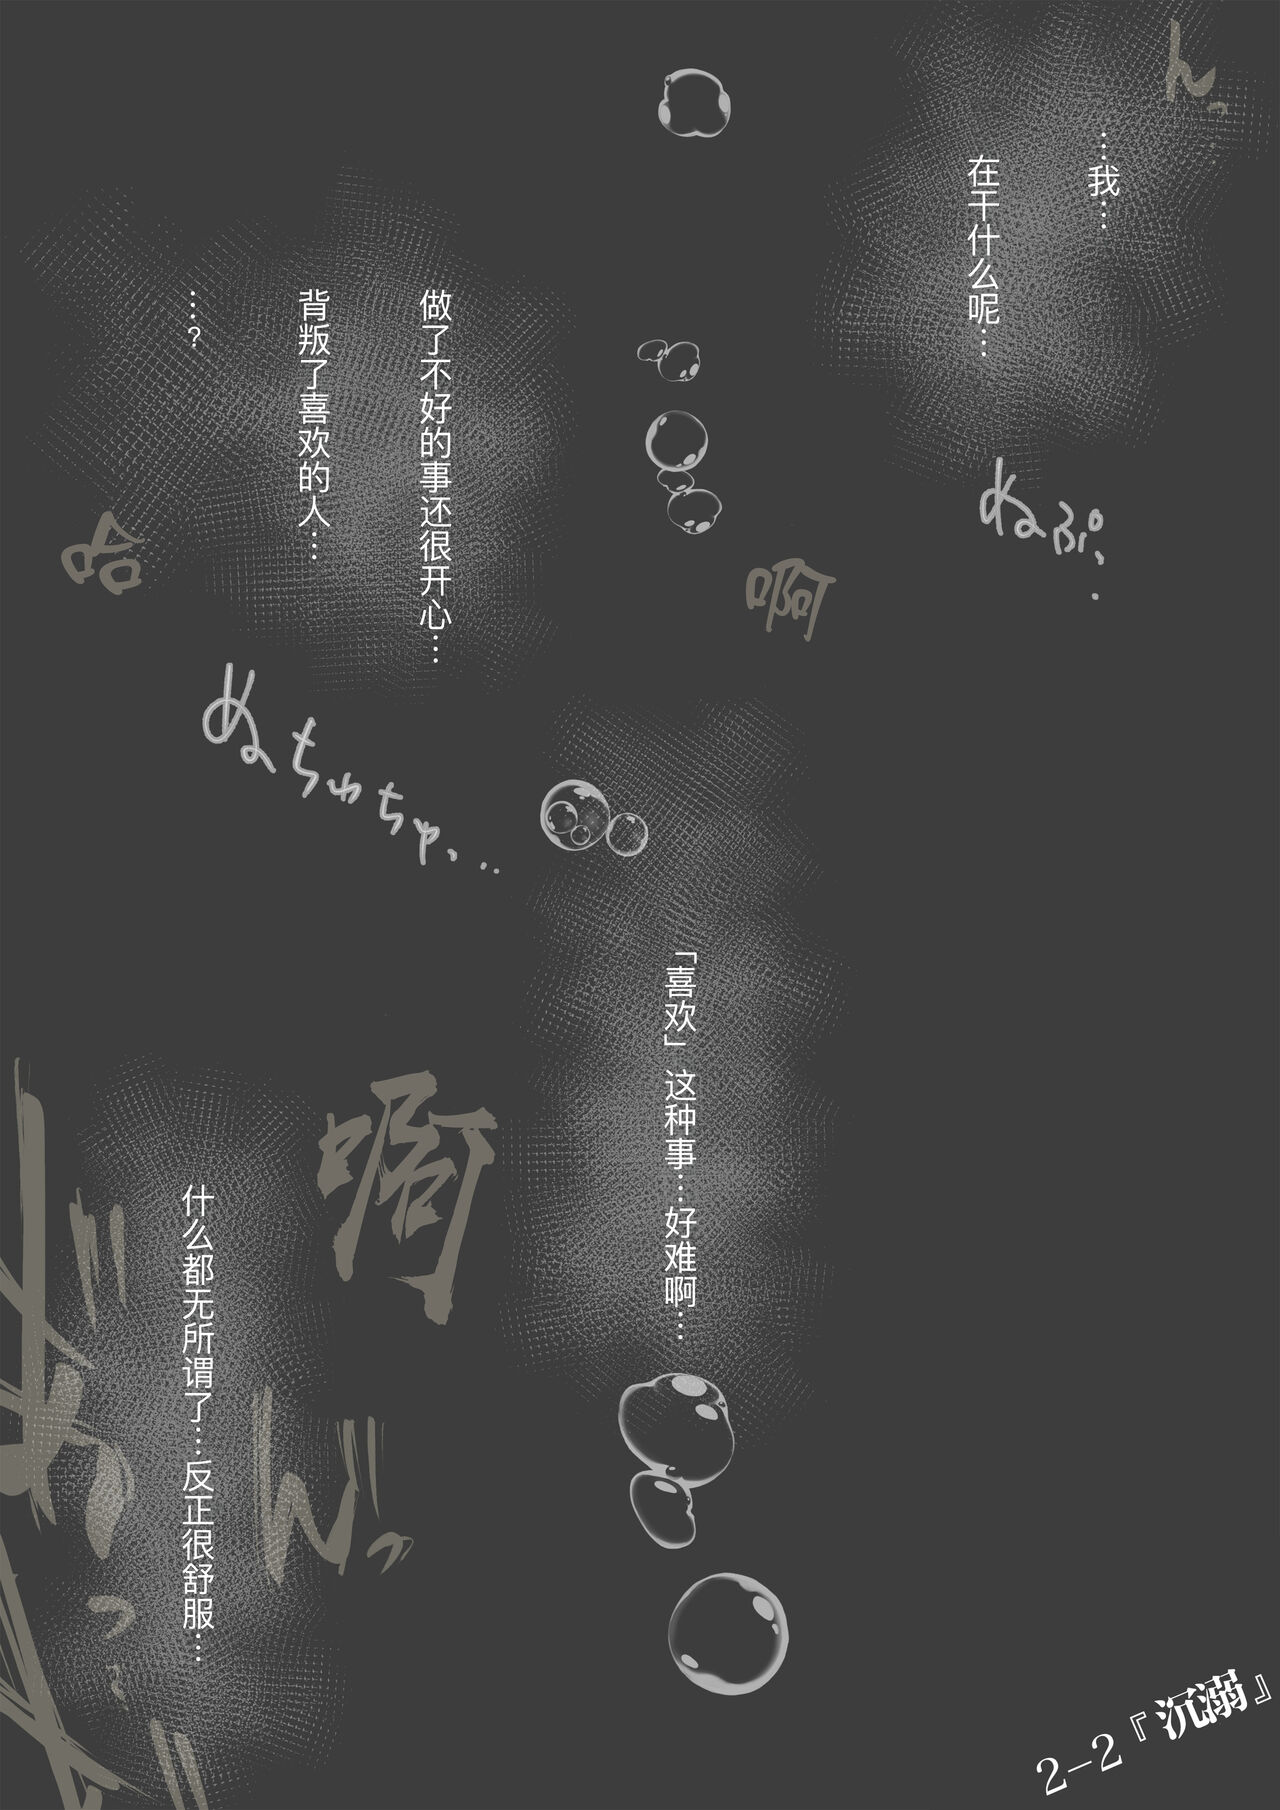 ん、
…我…
在干什么呢…
ぬぷ、…
做了不好的事还很开心…
背叛了喜欢的人…
…?
哈
啊
ぬちゅちゅ、…
「喜欢」这种事…好难啊…
啊
什么都无所谓了…反正很舒服…
2-2『沉溺』